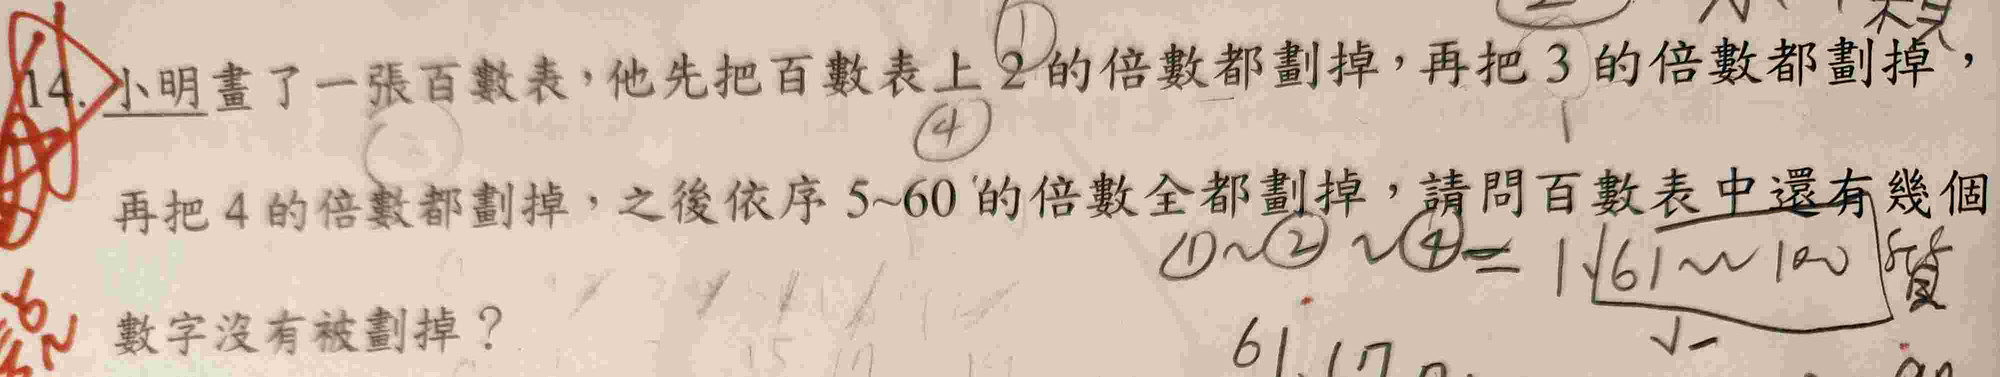 14. 小明畫了一張百數表，他先把百數表上2的倍數都劃掉，再把3的倍數都劃掉，
① ④
再把4的倍數都劃掉，之後依序5~60的倍數全都劃掉，請問百數表中還有幾個
①~②~④= 1 61~100 質
數字沒有被劃掉？
61